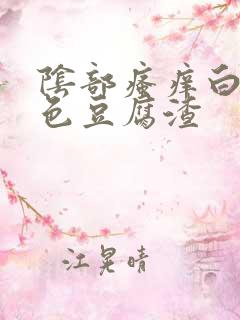 陰部瘙痒白
色豆腐渣
江晃晴